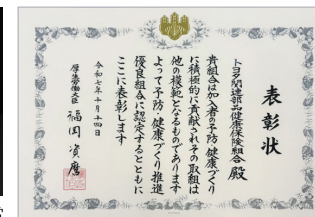 表彰状
トヨタ関連部品健康保険組合 殿
貴組合は加入者の予防 健康づくり
に積極的に貢献されその取組は
他の模範となるものであります
よって予防 健康づくり推進
優良組合に認定するとともに
ここに表彰します
令和七年十月二十四日
厚生労働大臣
福岡資麿